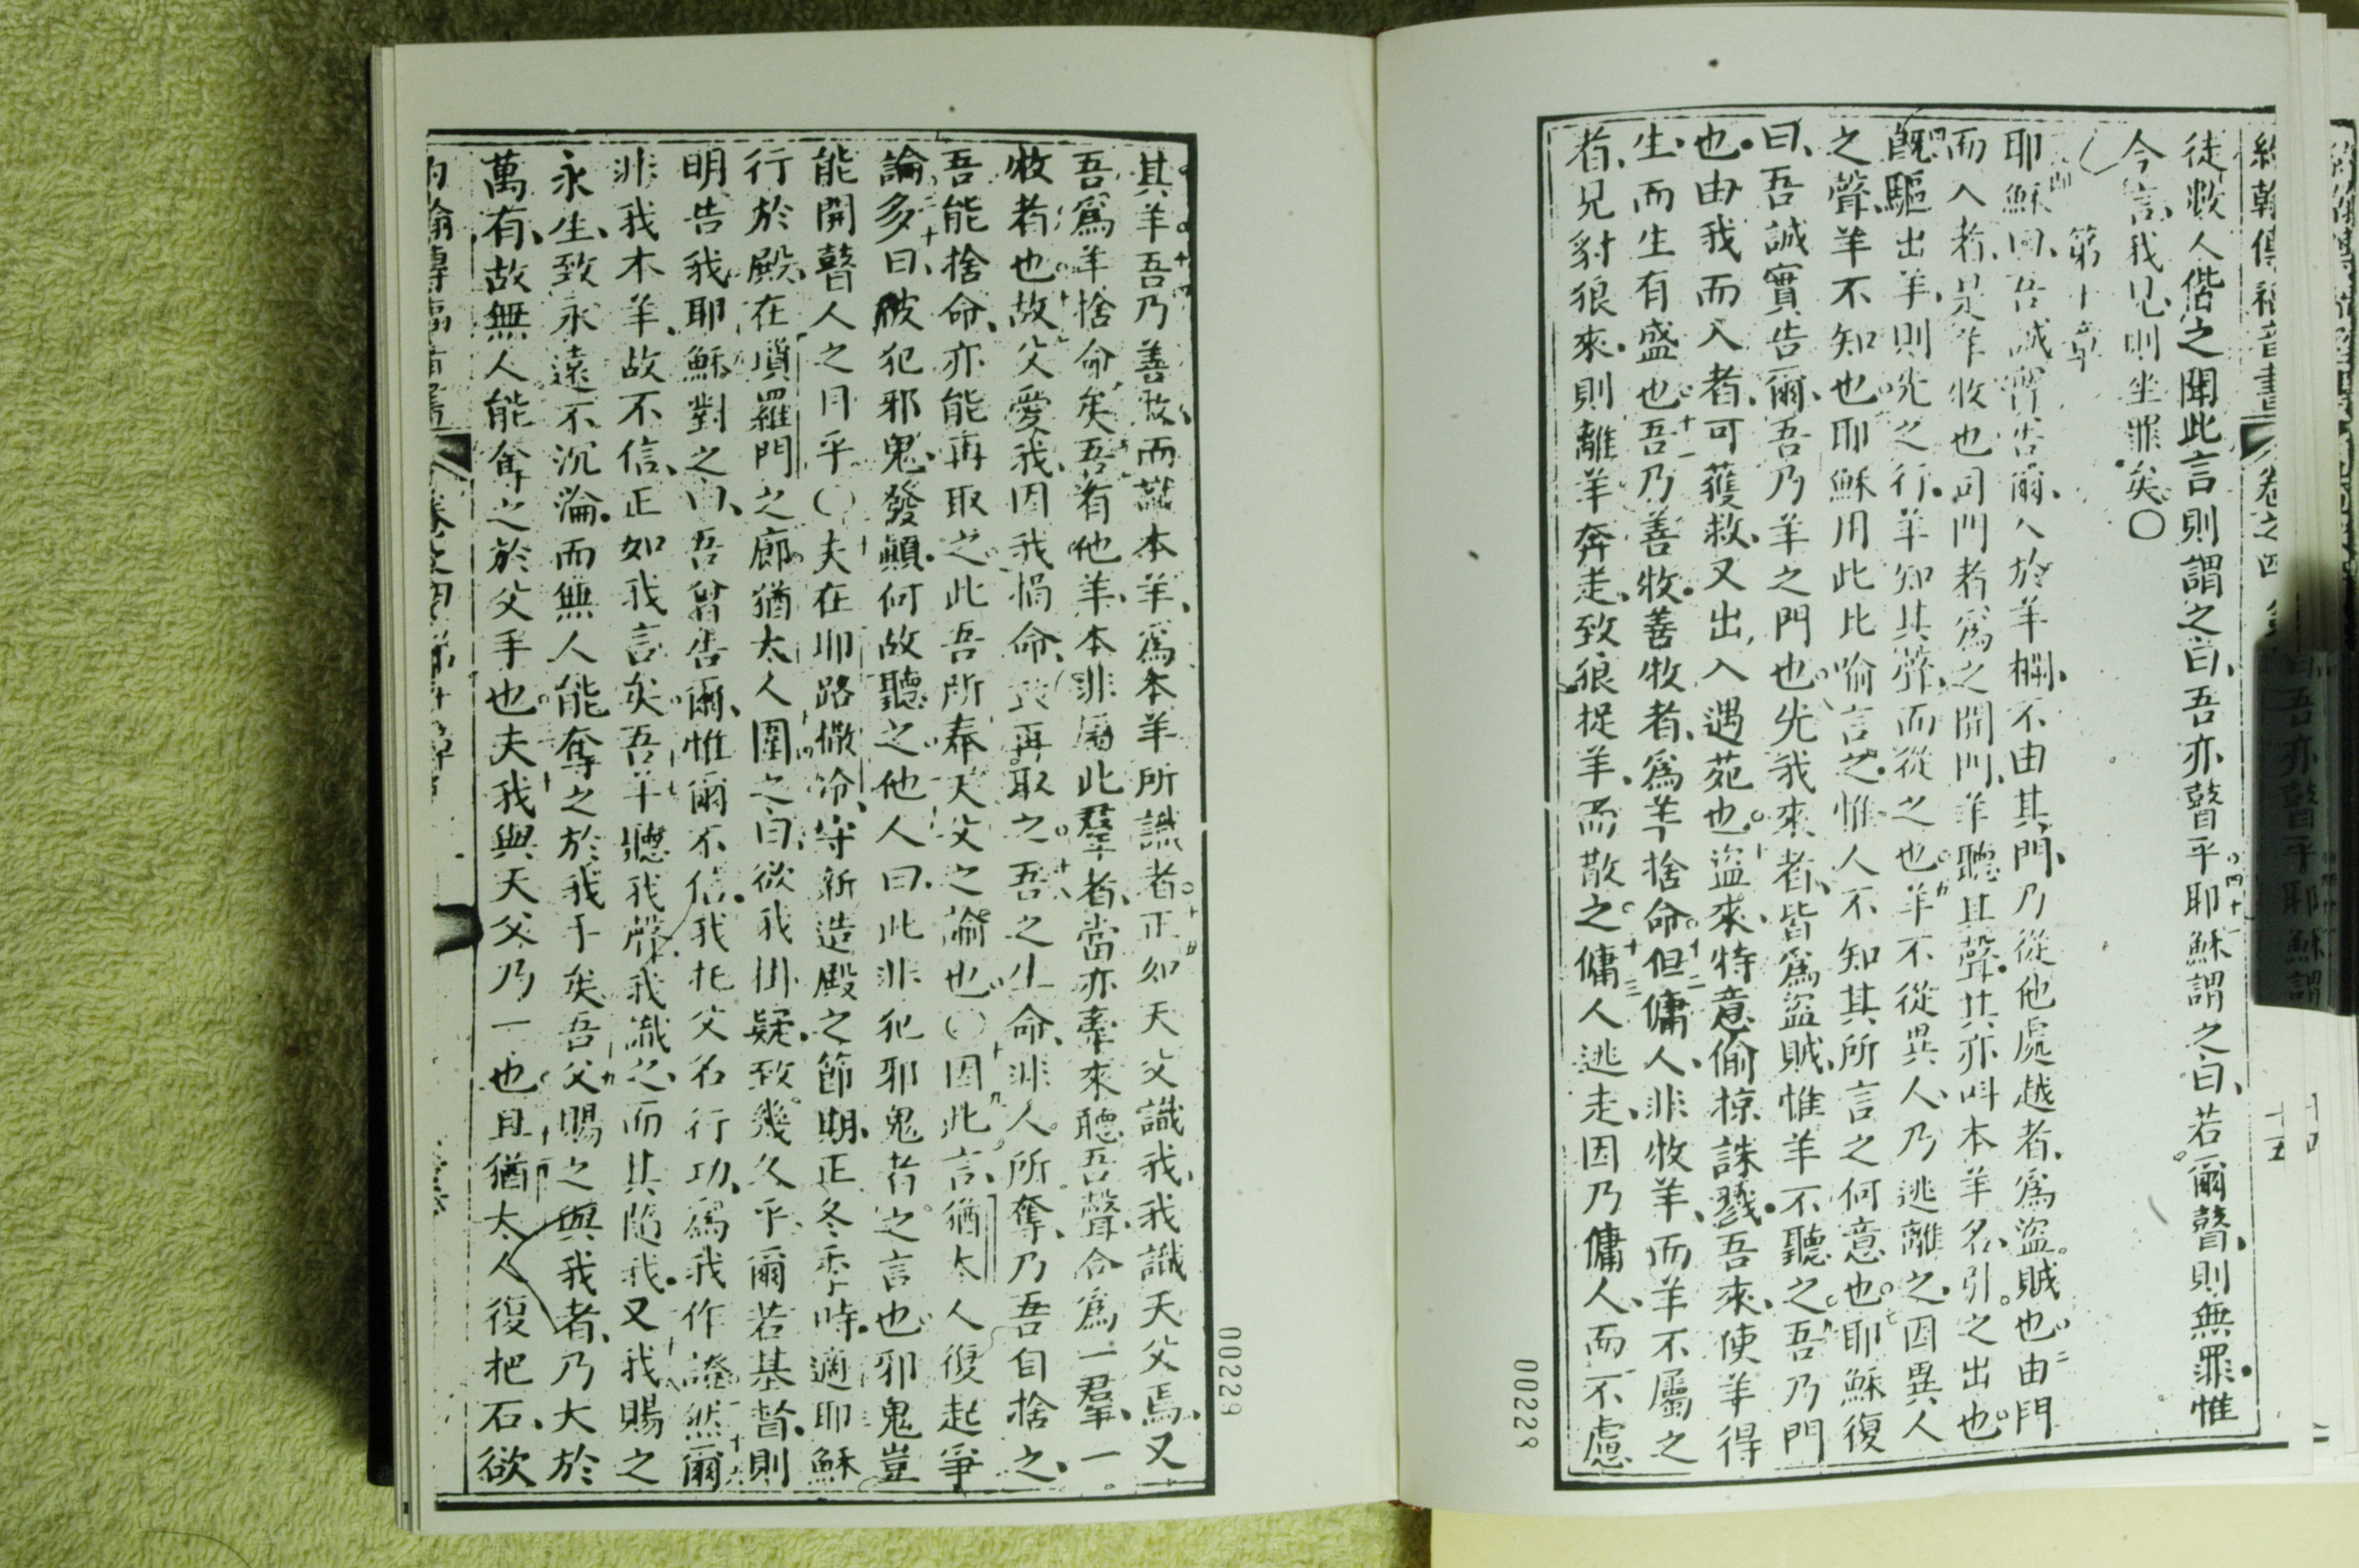 約翰傳福音書 卷之四
十五
徒數人偕之聞此言則謂之曰吾亦瞽乎耶穌謂之曰若爾瞽則無罪惟
今言我見則坐罪矣○
第十章
耶穌曰吾誠實告爾入於羊欄不由其門乃從他處越者為盜賊也由門
而入者是羊牧也司門者為之開門羊聽其聲其亦叫本羊名引之出也
既驅出羊則先之行羊知其聲而從之也羊不從異人乃逃離之因異人
之聲羊不知也耶穌用此比喻言之惟人不知其所言之何意也耶穌復
曰吾誠實告爾吾乃羊之門也先我來者皆為盜賊惟羊不聽之吾乃門
也由我而入者可獲救又出入遇苑也盜來特意偷掠誅戮吾來使羊得
生而生有盛也吾乃善牧善牧者為羊捨命但傭人非牧羊而羊不屬之
者見豺狼來則離羊奔走致狼捉羊而散之傭人逃走因乃傭人而不慮
00228
其羊吾乃善牧而識本羊為本羊所識者正如天父識我我識天父焉又
吾為羊捨命矣吾有他羊本非屬此羣者當亦牽來聽吾聲合為一羣一
牧者也故父愛我因我捐命致再取之吾之生命非人所奪乃吾自捨之
吾能捨命亦能再取之此吾所奉天父之諭也○因此言猶太人復起爭
論多曰彼犯邪鬼發顛何故聽之他人曰此非犯邪鬼者之言也邪鬼豈
能開瞽人之目乎○夫在耶路撒冷守新造殿之節期正冬季時適耶穌
行於殿在瑣羅門之廊猶太人圍之曰欲我掛疑致幾久乎爾若基督則
明告我耶穌對之曰吾曾告爾惟爾不信我托父名行功為我作證然爾
非我本羊故不信正如我言矣吾羊聽我聲我識之而其隨我又我賜之
永生致永遠不沉淪而無人能奪之於我手矣吾父賜之與我者乃大於
萬有故無人能奪之於父手也夫我與天父乃一也且猶太人復把石欲
約翰傳福音書 卷之四 第十章
00229